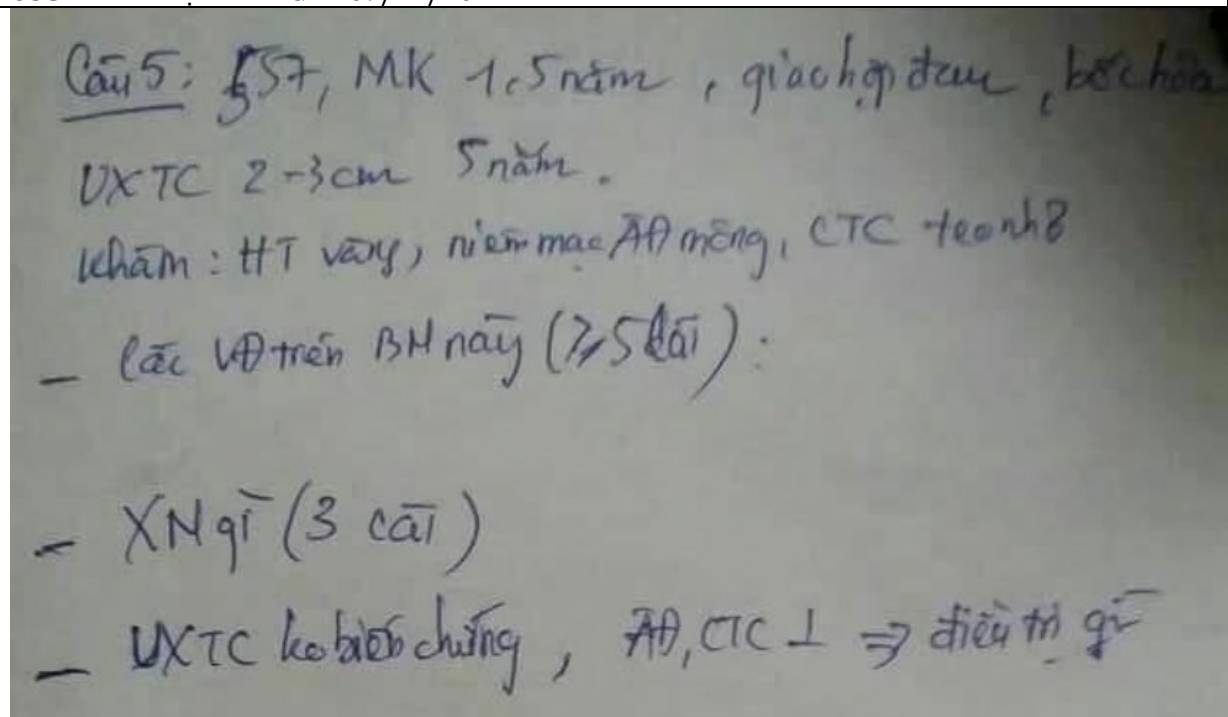 Câu 5: 57, MK 1,5 năm, giao hợp đau, bốc hỏa
UXTC 2-3cm 5 năm.
Khám: HT vàng, niêm mạc ÂĐ mỏng, CTC teo nhỏ
- Các VĐ trên BN này (≥5 cái):
- XN gì (3 cái)
- UXTC ko biến chứng, ÂĐ, CTC ⊥ => điều trị gì